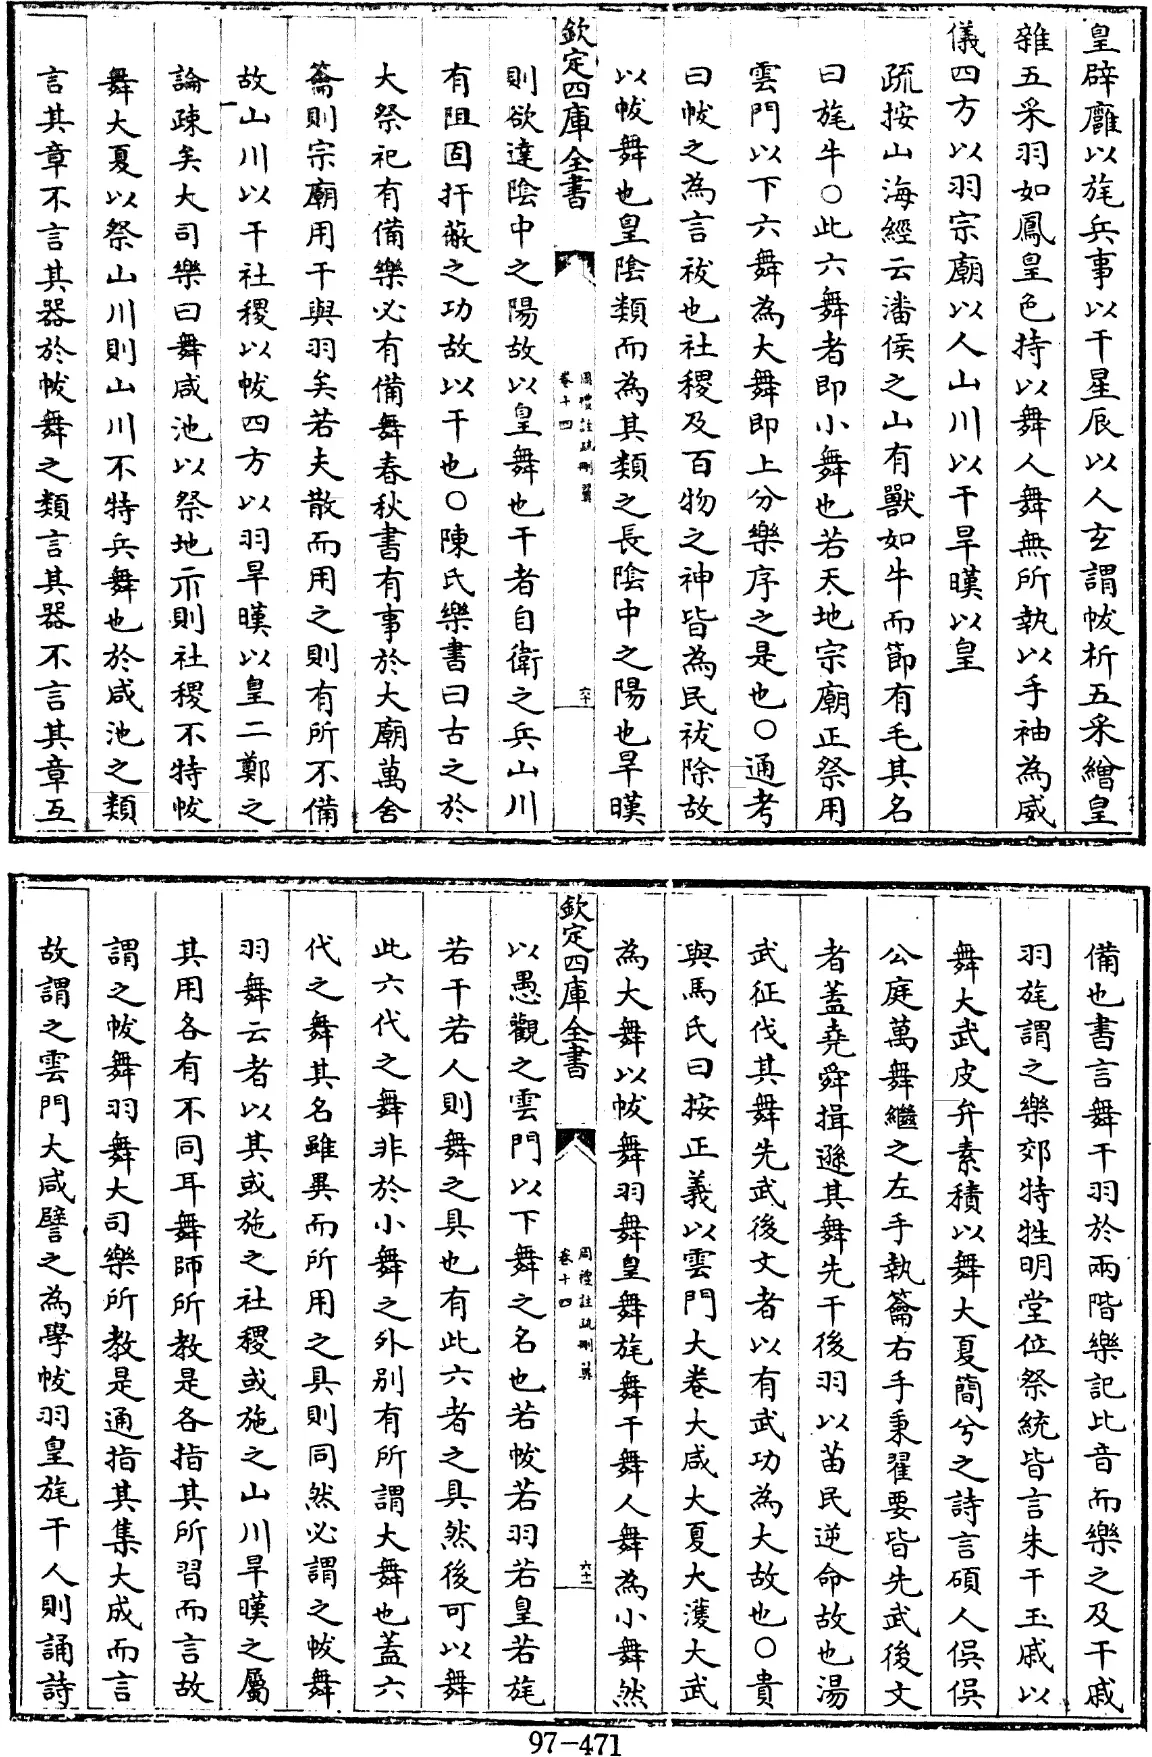 皇辟廱以旄兵事以干星辰以人玄謂帗析五采繒皇
雜五采羽如鳳皇色持以舞人舞無所執以手袖為威
儀四方以羽宗廟以人山川以干旱暵以皇
疏按山海經云潘侯之山有獸如牛而節有毛其名
曰旄牛○此六舞者即小舞也若天地宗廟正祭用
雲門以下六舞為大舞即上分樂序之是也○通考
曰帗之為言祓也社稷及百物之神皆為民祓除故
以帗舞也皇陰類而為其類之長陰中之陽也旱暵
欽定四庫全書
周禮註疏刪翼
卷十四
六十
則欲達陰中之陽故以皇舞也干者自衛之兵山川
有阻固扞蔽之功故以干也○陳氏樂書曰古之於
大祭祀有備樂必有備舞春秋書有事於大廟萬舍
籥則宗廟用干與羽矣若夫散而用之則有所不備
故山川以干社稷以帗四方以羽旱暵以皇二鄭之
論疎矣大司樂曰舞咸池以祭地示則社稷不特帗
舞大夏以祭山川則山川不特兵舞也於咸池之類
言其章不言其器於帗舞之類言其器不言其章互
備也書言舞干羽於兩階樂記比音而樂之及干戚
羽旄謂之樂郊特牲明堂位祭統皆言朱干玉戚以
舞大武皮弁素積以舞大夏簡兮之詩言碩人俁俁
公庭萬舞繼之左手執籥右手秉翟要皆先武後文
者蓋堯舜揖遜其舞先干後羽以苗民逆命故也湯
武征伐其舞先武後文者以有武功為大故也○貴
與馬氏曰按正義以雲門大卷大咸大夏大濩大武
為大舞以帗舞羽舞皇舞旄舞干舞人舞為小舞然
欽定四庫全書
周禮註疏刪翼
卷十四
六十一
以愚觀之雲門以下舞之名也若帗若羽若皇若旄
若干若人則舞之具也有此六者之具然後可以舞
此六代之舞非於小舞之外別有所謂大舞也蓋六
代之舞其名雖異而所用之具則同然必謂之帗舞
羽舞云者以其或施之社稷或施之山川旱暵之屬
其用各有不同耳舞師所教是各指其所習而言故
謂之帗舞羽舞大司樂所教是通指其集大成而言
故謂之雲門大咸譬之為學帗羽皇旄干人則誦詩
97-471